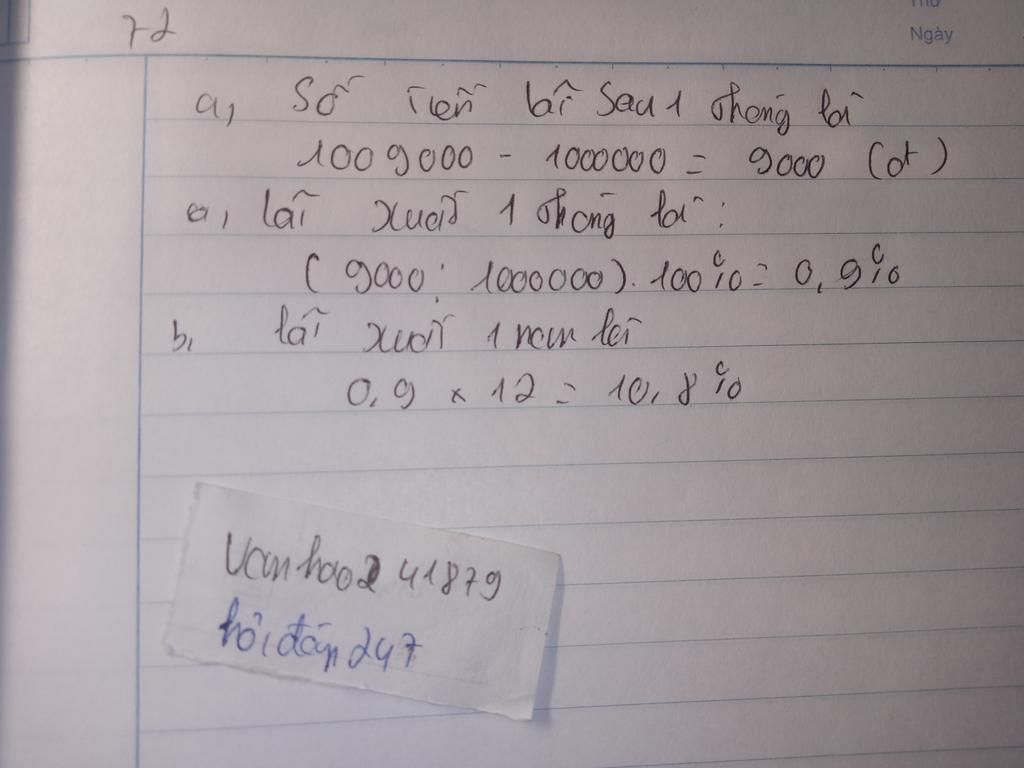 Thứ
72
Ngày
a, Số tiền lãi sau 1 tháng là
1009000 - 1000000 = 9000 (đ)
a, lãi xuất 1 tháng là:
( 9000 : 1000000). 100% = 0,9%
b, lãi xuất 1 năm là
0,9 x 12 = 10,8%
vanhao241879
hỏi đáp 247